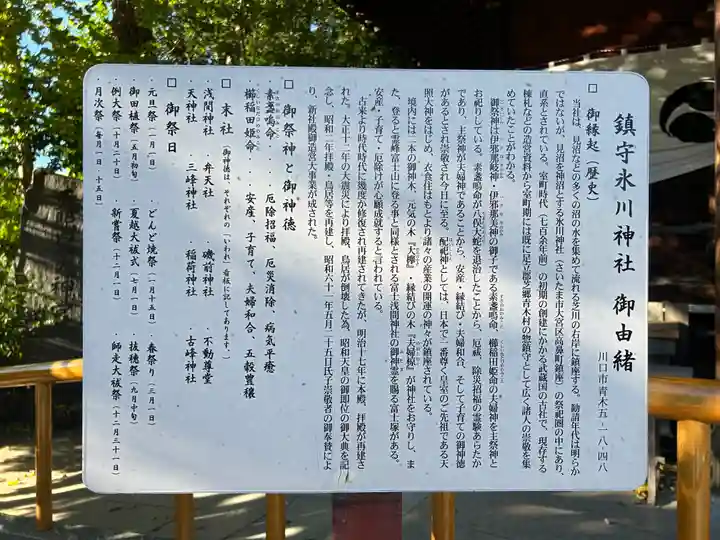 鎮守氷川神社 御由緒
川口市青木五-一八-四八
□ 御縁起（歴史）
当社は、見沼などの多くの沼の水を集めて流れる芝川の右岸に鎮座する。勧請年代は明らか
ではないが、見沼を神沼とする氷川神社（さいたま市大宮区高鼻町鎮座）の祭祀圏の中にあり、
直系とされている。室町時代（七百余年前）の初期の創建にかかる武蔵国の古社で、現存する
棟札などの造営資料から室町期には既に足立郡芝郷青木村の惣鎮守として広く諸人の崇敬を集
めていたことがわかる。
御祭神は伊邪那岐神、伊邪那美神の御子である素盞嗚命、櫛稲田姫命の夫婦神を主祭神と
お祀りしている。素盞嗚命が八俣大蛇を退治したことから、厄祓、除災招福の霊験あらたか
であり、主祭神が夫婦神であることから、安産・縁結び・夫婦和合、そして子育ての御神徳
があるとされ崇敬され今日に至る。配祀神としては、日本で一番尊く皇室のご先祖である天
照大神をはじめ、衣食住はもとより諸々の産業の開運の神々が鎮座されている。
境内には二本の御神木、元気の木『大欅』、縁結びの木『夫婦椋』が神社をお守りし、ま
た、登ると霊峰富士山に登る事と同様とされる富士浅間神社の御神霊を賜る富士塚がある。
安産・子育て・厄除けが心願成就すると言われている。
古来より時代時代に幾度か修復され再建されてきたが、明治十七年に本殿、拝殿が再建さ
れた。大正十二年の大震災により拝殿、鳥居が倒壊した為、昭和天皇の御即位の御大典を記
念し、昭和二年拝殿・鳥居等を再建し、昭和六十一年五月二十五日氏子崇敬者の御奉賛によ
り、新社殿御造営大事業が成された。
□ 御祭神と御神徳
・素盞嗚命 ・厄除招福、厄災消除、病気平癒
・櫛稲田姫命 ・安産、子育て、夫婦和合、五穀豊穣
□ 末社（御神徳は、それぞれの「いわれ」看板に記してあります。）
・浅間神社 ・弁天社 ・磯前神社 ・不動尊堂
・天神社 ・三峰神社 ・稲荷神社 ・古峰神社
□ 御祭日
・元旦祭（一月一日） ・どんど焼祭（一月十五日） ・春祭り（三月一日）
・御田植祭（五月初旬） ・夏越大祓式（七月一日） ・抜穂祭（九月中旬）
・例大祭（十月二十日） ・新嘗祭（十二月一日） ・師走大祓祭（十二月三十一日）
・月次祭（毎月一日、十五日）